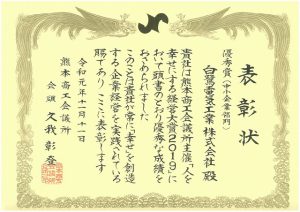 表彰状
優秀賞(中小企業部門)
白鷺電気工業株式会社 殿
貴社は熊本商工会議所主催「人を
幸せにする経営大賞2019」に
おいて頭書のとおり優秀な成績を
おさめられました
このことは貴社が常に幸せを創造
する企業経営を実践されている
賜であり ここに表彰します
令和元年十一月十一日
熊本商工会議所
会頭 久我彰登